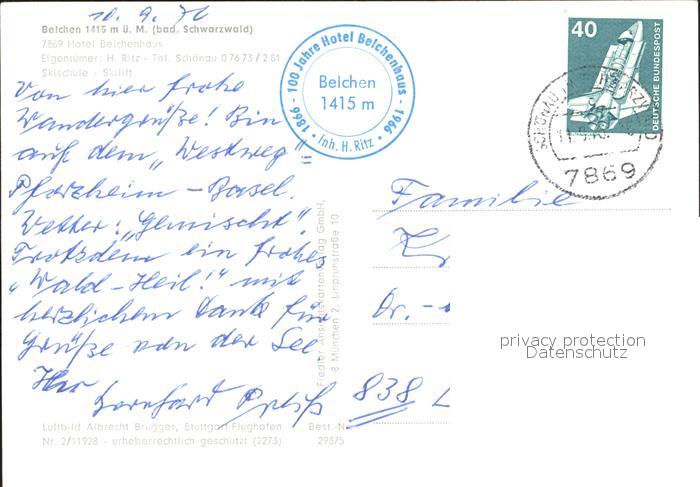 10. 9. 76
Belchen 1415 m ü. M. (bad. Schwarzwald)
7869 Hotel Belchenhaus
Eigentümer: H. Ritz - Tel. Schönau 07673/281
Skischule - Skilift
1866 - 100 Jahre Hotel Belchenhaus - 1966
Belchen
1415 m
Inh. H. Ritz
40
DEUTSCHE BUNDESPOST
7869
Von hier frohe
Wandergrüße! Bin
auf dem „Westweg"
Pforzheim - Basel.
Wetter: „Gemischt".
Trotzdem ein frohes
„Wald-Heil!" mit
herzlichem Dank für
Grüße von der See
Ihr
Bernhard Preiß
Familie
Dr. -
838 L
privacy protection
Datenschutz
Fiedler Ansichtskarten-Verlag GmbH,
8 München 2, Linprunstraße 10
Luftbild Albrecht Brugger, Stuttgart Flughafen Best.-Nr.
Nr. 2/11928 - urheberrechtlich geschützt (2273) 29375